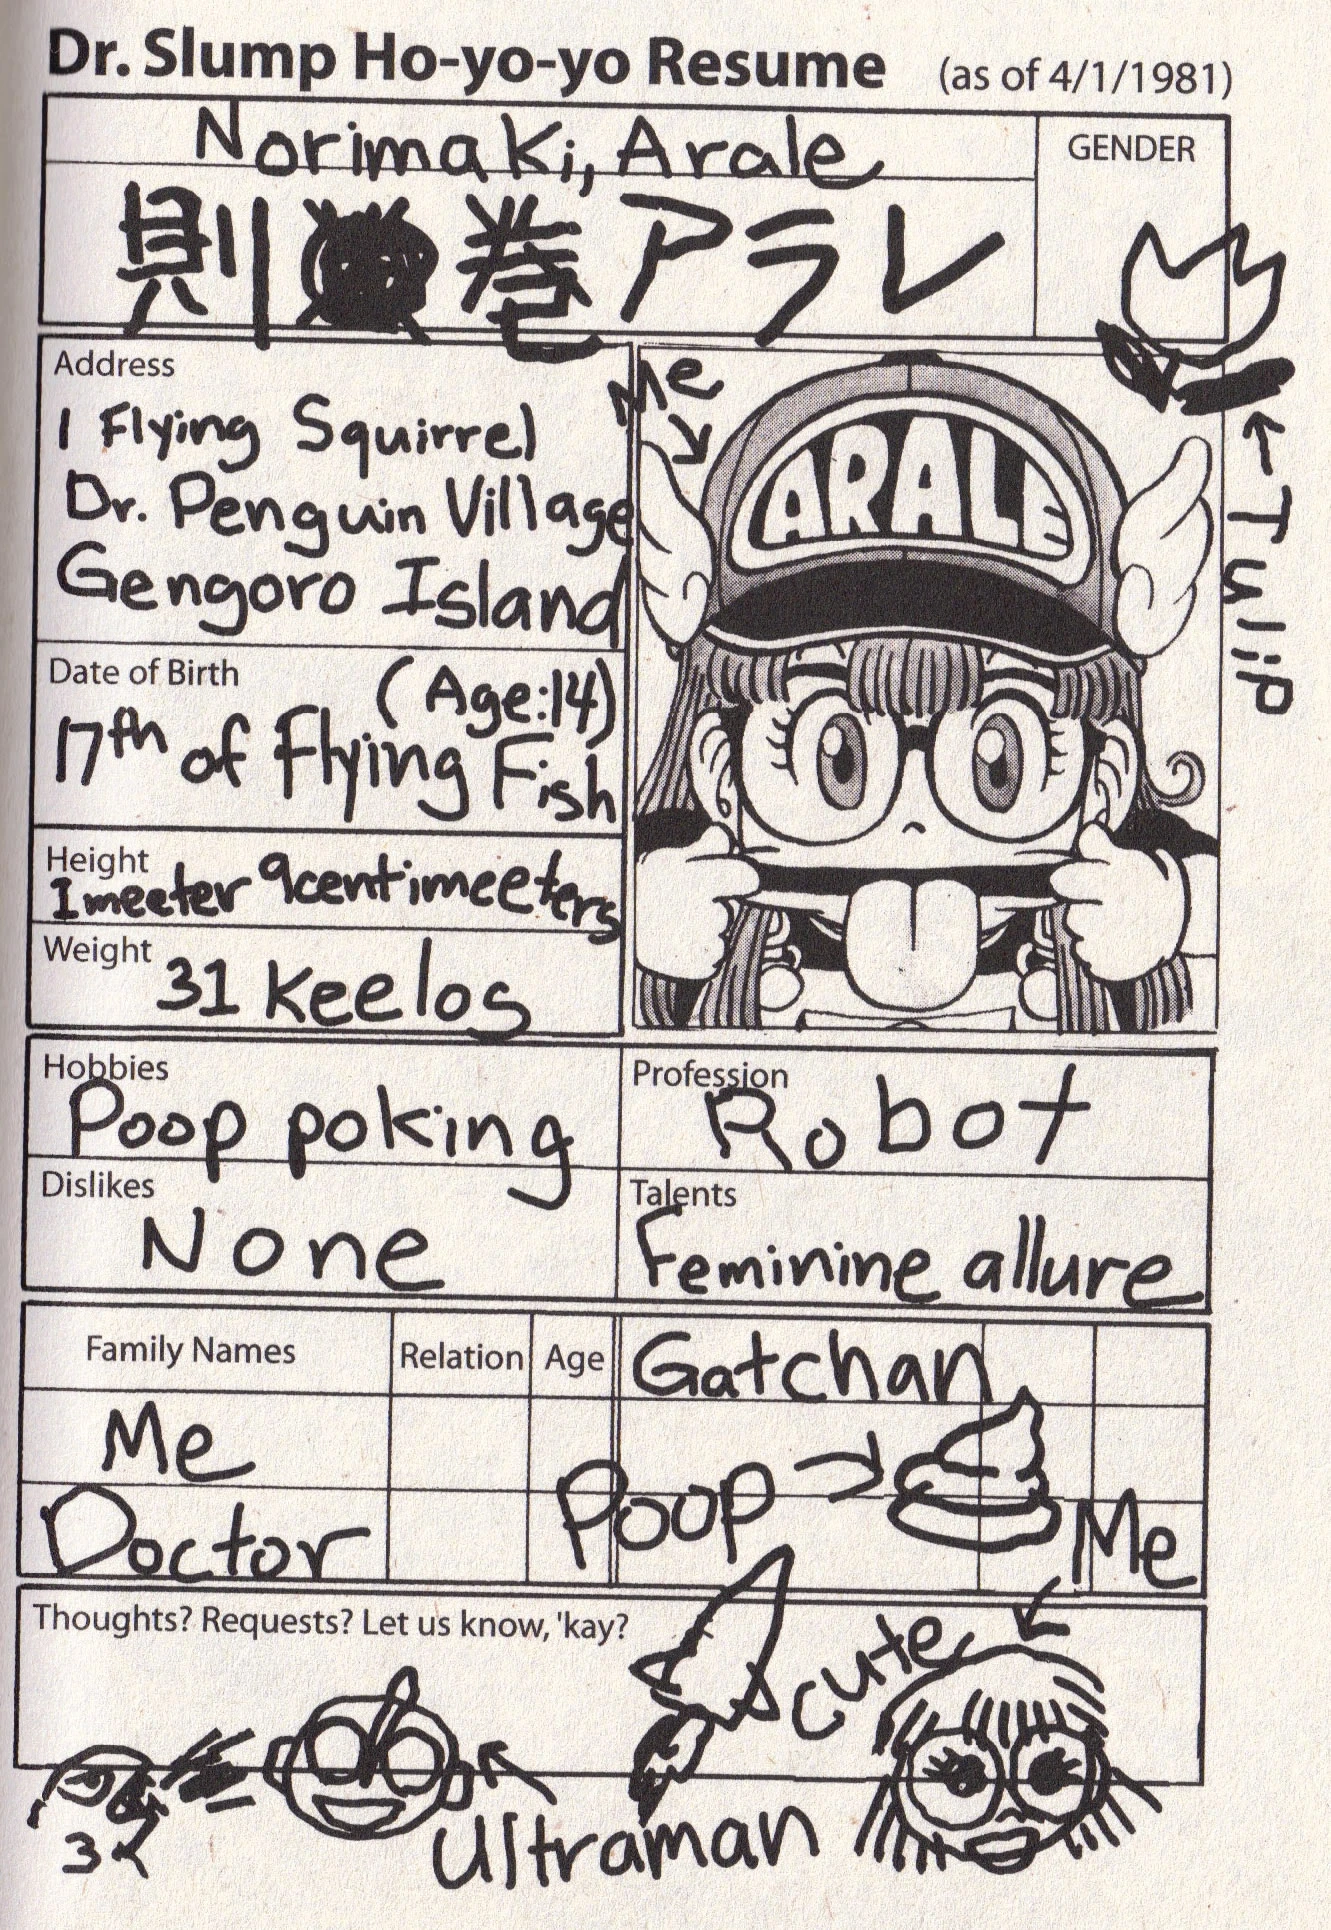 Dr. Slump Ho-yo-yo Resume (as of 4/1/1981)
Norimaki, Arale
GENDER
則巻アラレ
Address
1 Flying Squirrel
Dr. Penguin Village
Gengoro Island
Me
ARALE
Tulip
Date of Birth
(Age:14)
17th of Flying Fish
Height
1meeter 9centimeeters
Weight
31 keelos
Hobbies
Poop poking
Profession
Robot
Dislikes
None
Talents
Feminine allure
Family Names Relation Age
Gatchan
Me
Poop
Doctor
Me
Thoughts? Requests? Let us know, 'kay?
cute
Ultraman